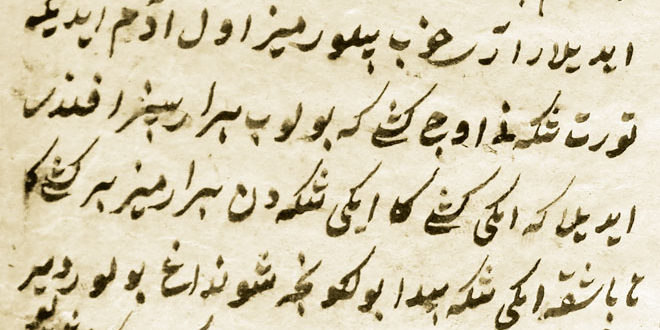 ایدیلار خوب بیلورمیز اول آدم ایدیکه
تورت تنکه نی اوچ کشی که بولوب بیرارسیز افندی
ایدیلا که ایکی کشی کا ایکی تنکه دن بیرارمیز بر کشی کا
تا باشقه ایکی تنکه پیدا بولکونچه شونداغ بولور دیر